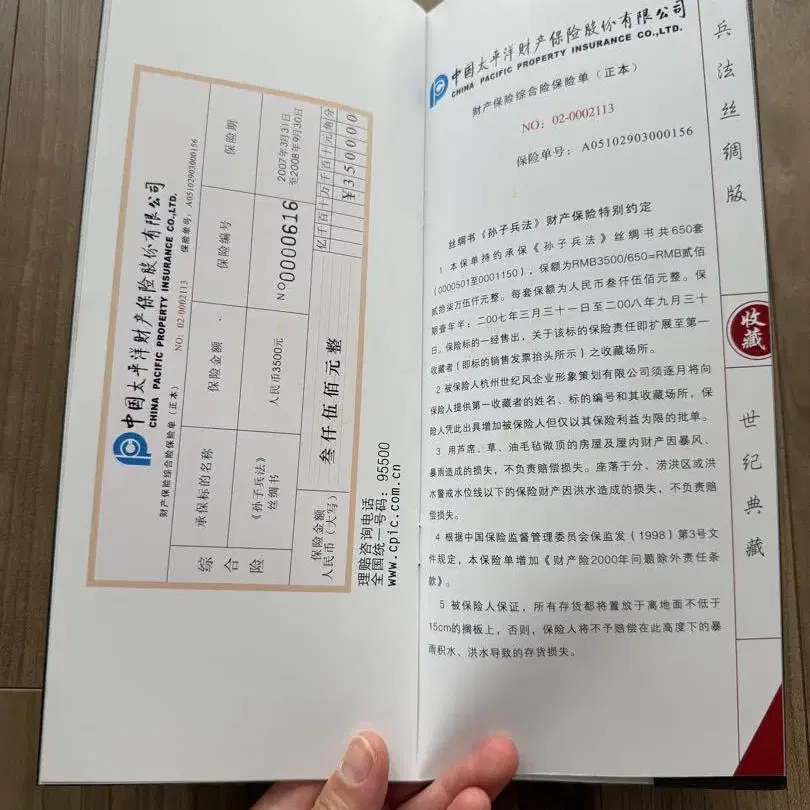 中国太平洋财产保险股份有限公司
CHINA PACIFIC PROPERTY INSURANCE CO.,LTD.
财产保险综合险保险单（正本）
NO：02-0002113
保险单号：A05102903000156
综合险
承保标的名称
保险金额
保险编号
保险期
《孙子兵法》
丝绸书
人民币3500元
NO0000616
2007年3月31日
至2008年9月30日
保险金额
人民币（大写）
叁仟伍佰元整
亿千百十万千百十元角分
¥350000
理赔咨询电话
全国统一号码：95500
www.cpic.com.cn
中国太平洋财产保险股份有限公司
CHINA PACIFIC PROPERTY INSURANCE CO.,LTD.
财产保险综合险保险单（正本）
NO：02-0002113
保险单号：A05102903000156
丝绸书《孙子兵法》财产保险特别约定
1 本保单特约承保《孙子兵法》丝绸书共650套
（0000501至0001150），保额为RMB3500/650=RMB贰佰
贰拾柒万伍仟元整。每套保额为人民币叁仟伍佰元整。保
期壹年半：二00七年三月三十一日至二00八年九月三十
日。保险标的一经售出，关于该标的保险责任即扩展至第一
收藏者（即标的销售发票抬头所示）之收藏场所。
2 被保险人杭州世纪风企业形象策划有限公司须逐月将向
保险人提供第一收藏者的姓名、标的编号和其收藏场所，保
险人凭此出具增加被保险人但仅以其保险利益为限的批单。
3 用芦席、草、油毛毡做顶的房屋及屋内财产因暴风、
暴雨造成的损失，不负责赔偿损失。座落于分、涝洪区或洪
水警戒水位线以下的保险财产因洪水造成的损失，不负责赔
偿损失。
4 根据中国保险监督管理委员会保监发（1998）第3号文
件规定，本保险单增加《财产险2000年问题除外责任条
款》。
5 被保险人保证，所有存货都将置放于离地面不低于
15cm的搁板上，否则，保险人将不予赔偿在此高度下的暴
雨积水、洪水导致的存货损失。
兵法丝绸版
收藏
世纪典藏